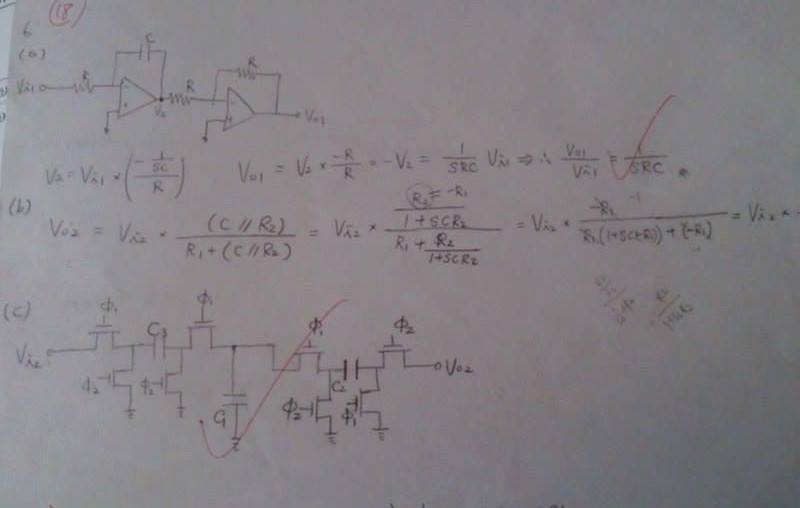 18
6
(a)
C
R
R
R
Vi1
V2
Vo1
V2 = Vi1 × (− (1/SC) / R)    Vo1 = V2 × −R/R = −V2 = 1/SRC Vi1 ⇒ ∴ Vo1/Vi1 = 1/SRC
(b)
Vo2 = Vi2 × (C // R2) / (R1 + (C // R2)) = Vi2 × (R2 / (1 + SCR2)) / (R1 + R2 / (1 + SCR2)) = Vi2 ×
R2 = −R1
= Vi2 ×
(c)
Φ1
C3
Φ1
Φ1
Φ2
Vi2
Φ2
Φ2
C1
Φ2
C2
Φ1
Vo2